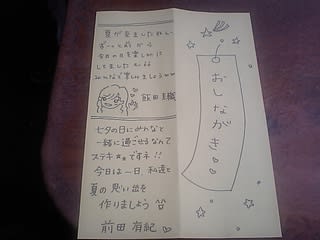 おしながき
夏が来ましたねぃ
ずーっと前から
今日の日を楽しみに
してましたよぉ
みんなで楽しみましょう♡♡
飯田圭織
七夕の日にみんなと
一緒に過ごせるなんて
ステキ★ですネ!!
今日は一日、私達と
夏の思い出を
作りましょう
前田有紀